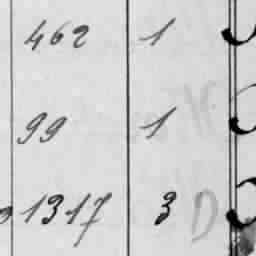 462 1
99 1
1317 3 D